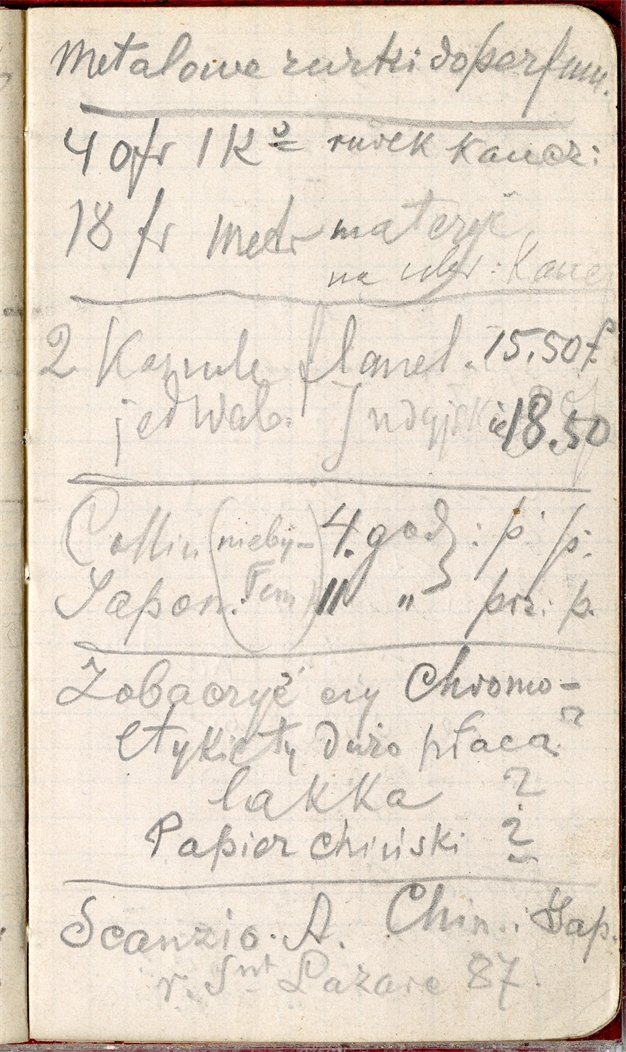 Metalowe rurki do perfum.
40 fr 1 Kº rurek kaucz:
18 fr metr materye
na ubr: Kauc
2 Koszule flanel. 15.50 f.
jedwab. Indyjskie 18.50
Collin (nieby- 4. god: p. p:
Japon. łem) " " prz: p.
Zobaczyć czy Chromo-
etykiety dużo płacą?
lakka ?
Papier chiński ?
Scanzio. A. Chin.. Jap.
r. Snt Lazare 87.